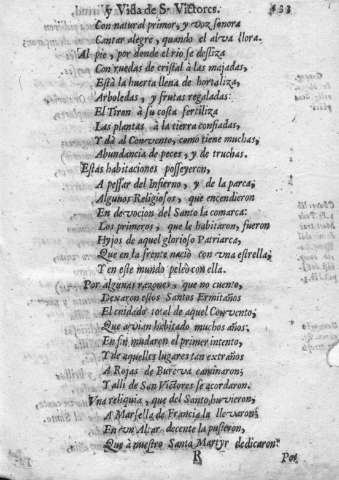 y Vida de S. Victores. 133
Con natural primor, y voz sonora
Cantar alegre, quando el alva llora.
Al pie, por donde el rio se desliza
Con ruedas de cristal à las majadas,
Està la huerta llena de hortaliza,
Arboledas, y frutas regaladas:
El Tiron à su costa fertiliza
Las plantas, à la tierra confiadas,
Y dà al Convento, como tiene muchas,
Abundancia de peces, y de truchas.
Estas habitaciones posseyeron,
A pessar del Infierno, y de la parca,
Algunos Religiosos, que encendieron
En devocion del Santo la comarca:
Los primeros, que le habitaron, fueron
Hijos de aquel glorioso Patriarca,
Que en la frente naciò con una estrella;
Y en este mundo peleò con ella.
Por algunas razones, que no cuento,
Dexaron essos Santos Ermitaños
El cuidado total de aquel Convento;
Que avian habitado muchos años:
En fin mudaron el primer intento,
Y de aquellos lugares tan extraños
A Rojas de Bureva caminaron;
Y alli de San Victores se acordaron.
Una reliquia, que del Santo huvieron,
A Marsella de Francia la llevaron;
En un Altar decente la pusieron,
Que à nuestro Santo Martyr dedicaron.
R Por